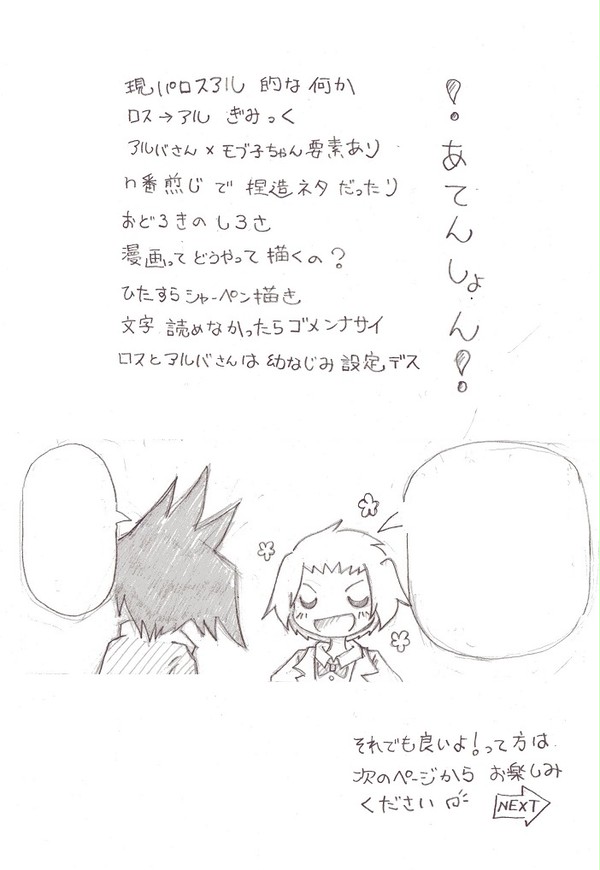 !あてんしょん!
現パロスアル 的な何か
ロス→アル ぎみっく
アルバさん×モブ子ちゃん要素あり
n番煎じで 捏造ネタだったり
おどろきのしろさ
漫画ってどうやって描くの?
ひたすらシャーペン描き
文字 読めなかったらゴメンナサイ
ロスとアルバさんは幼なじみ設定デス
それでも良いよ!って方は
次のページから お楽しみ
ください
NEXT